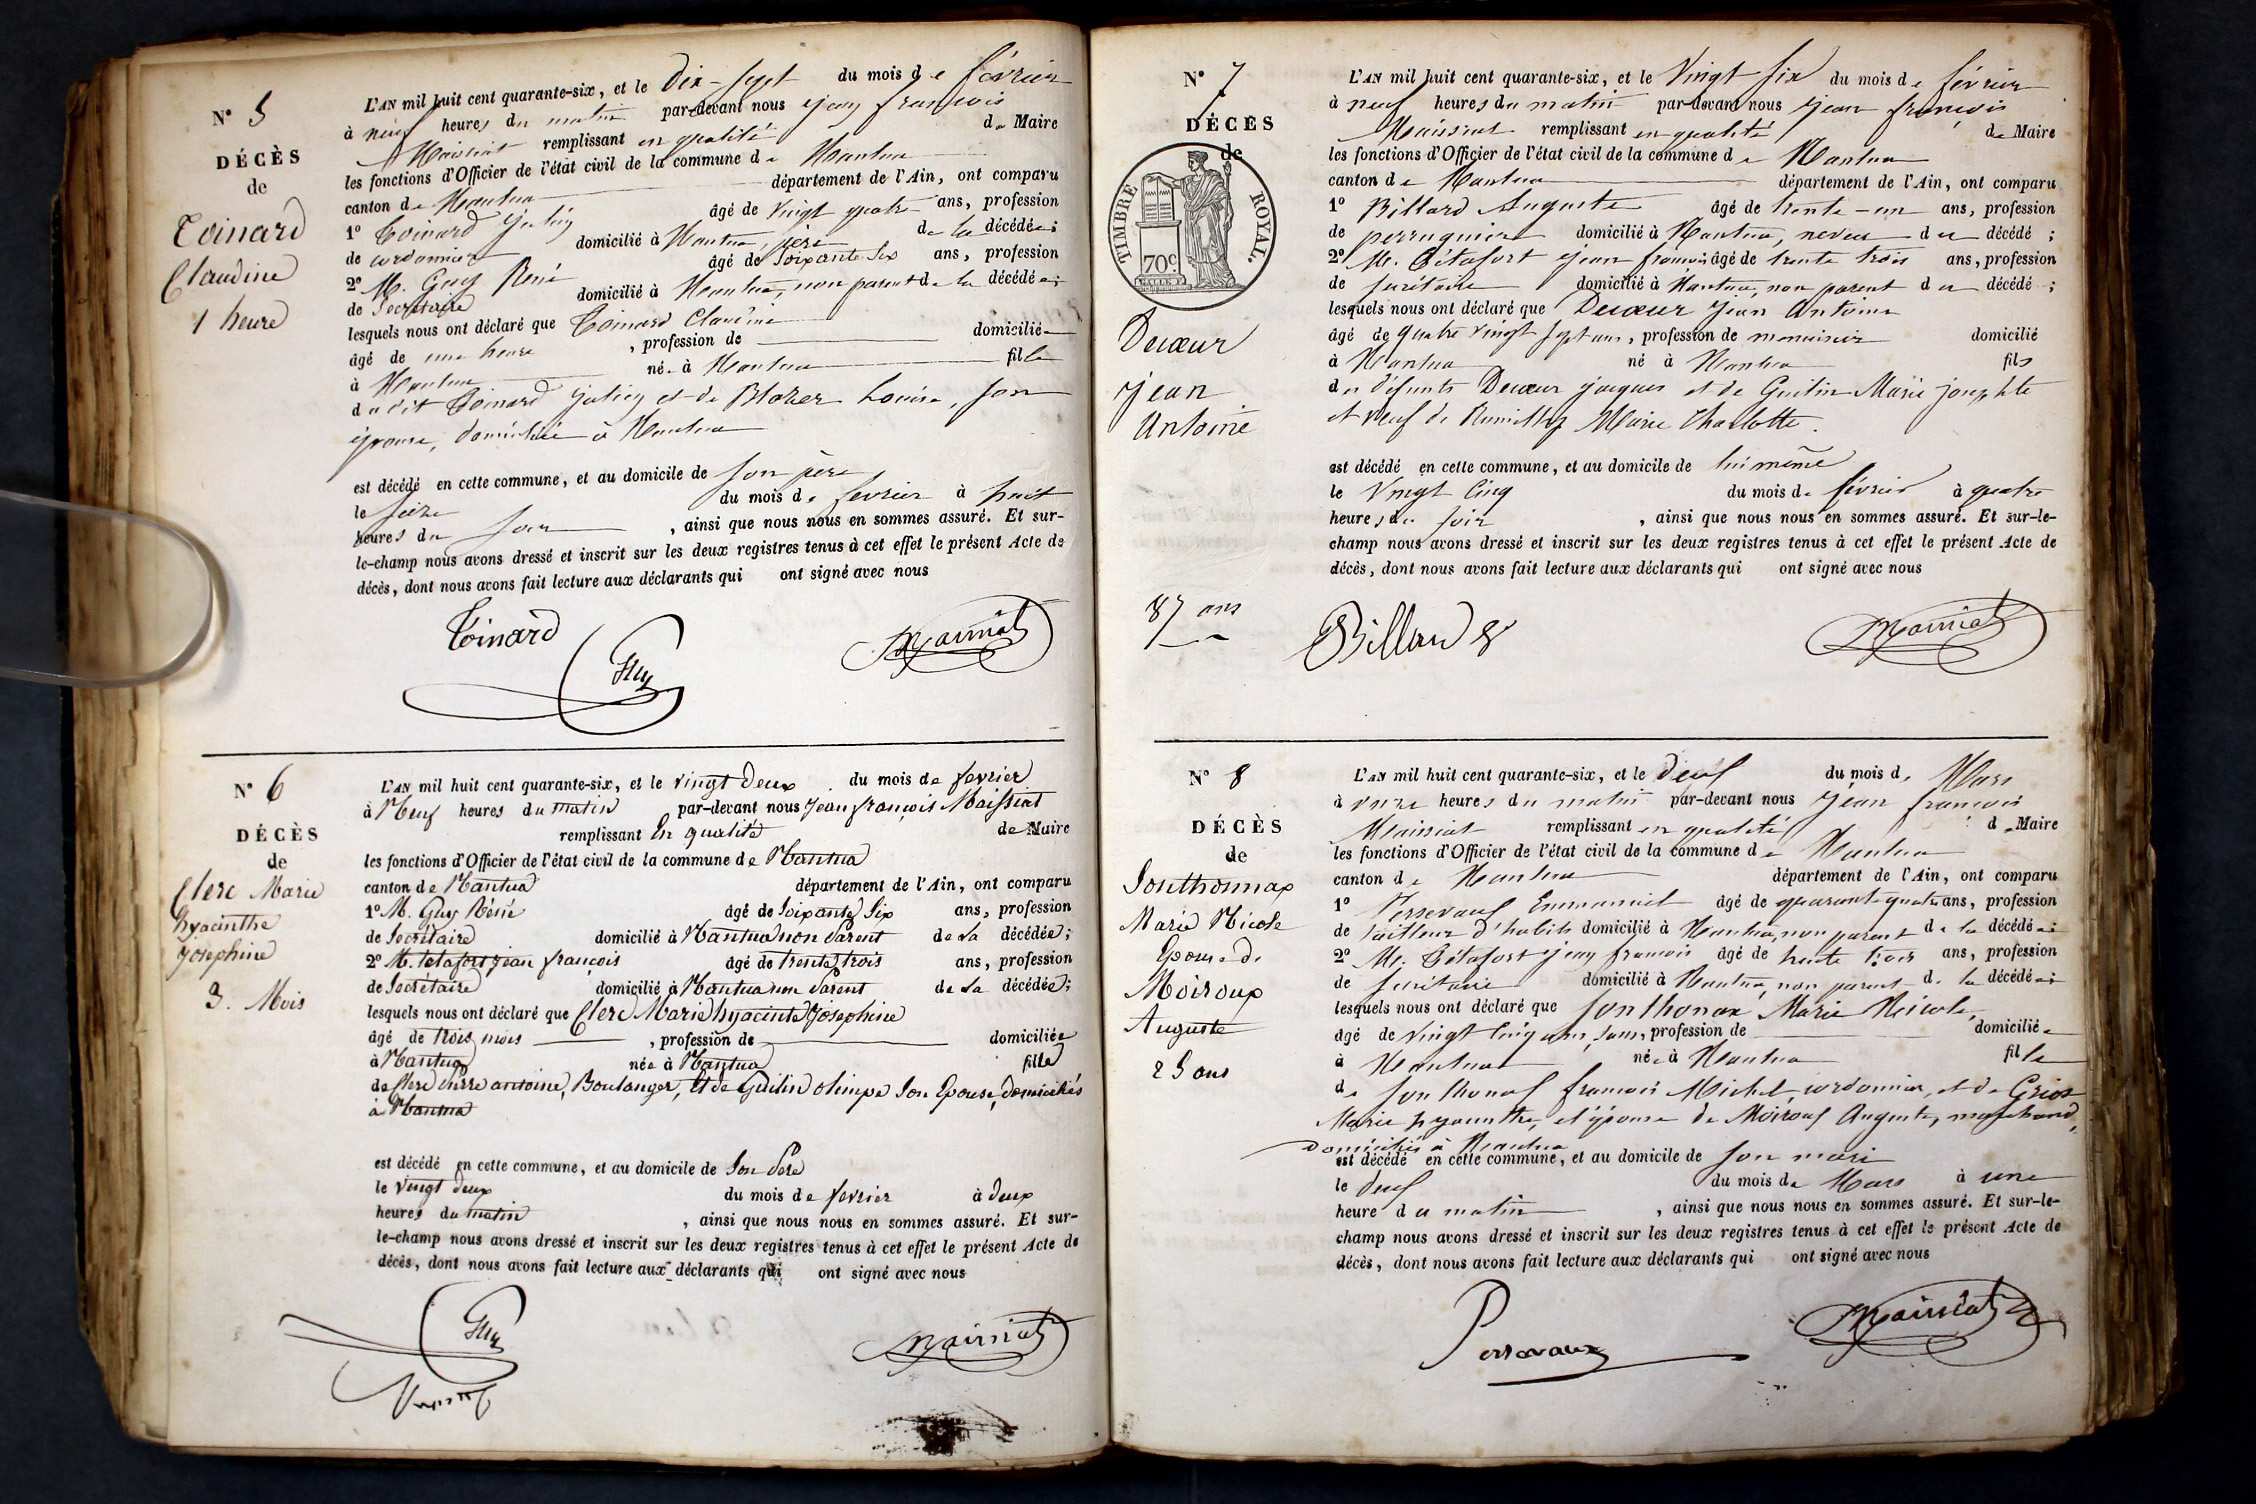 N° 5
DÉCÈS
de
Toinard
Claudine
1 heure
L'AN mil huit cent quarante-six, et le dix-sept du mois de février
à neuf heures du matin par-devant nous jean françois
Maissiat remplissant en qualité de Maire
les fonctions d'Officier de l'état civil de la commune de Nantua
canton de Nantua département de l'Ain, ont comparu
1° Toinard âgé de vingt quatre ans, profession
de cordonnier domicilié à Nantua, père de la décédée;
2° M. Guy René âgé de soixante six ans, profession
de Secrétaire domicilié à Nantua, non parent de la décédée;
lesquels nous ont déclaré que Toinard Claudine
âgé de une heure , profession de domicilié
à Nantua née à Nantua fille
du dit Toinard et de Louise, son
épouse, domiciliée à Nantua
est décédé en cette commune, et au domicile de son père
le seize du mois de fevrier à huit
heures du soir , ainsi que nous nous en sommes assuré. Et sur-
le-champ nous avons dressé et inscrit sur les deux registres tenus à cet effet le présent Acte de
décès, dont nous avons fait lecture aux déclarants qui ont signé avec nous
Toinard
Guy
Maissiat
N° 6
DÉCÈS
de
Clerc Marie
hyacinthe
josephine
3. Mois
L'AN mil huit cent quarante-six, et le vingt deux du mois de fevrier
à Neuf heures du matin par-devant nous jean françois Maissiat
remplissant En qualité de Maire
les fonctions d'Officier de l'état civil de la commune de Nantua
canton de Nantua département de l'Ain, ont comparu
1° M. Guy Réné âgé de Soixante Six ans, profession
de Secrétaire domicilié à Nantua non Parent de la décédée;
2° M. tétafort jean françois âgé de trente trois ans, profession
de Secrétaire domicilié à Nantua non Parent de la décédée;
lesquels nous ont déclaré que Clerc Marie hyacinte josephine
âgé de trois mois , profession de domiciliée
à Nantua née à Nantua fille
de Clerc Pierre antoine, Boulanger, et de Guilin olimpe Son Epouse, domiciliés
à Nantua
est décédé en cette commune, et au domicile de Son Pere
le vingt deux du mois de fevrier à deux
heures du matin , ainsi que nous nous en sommes assuré. Et sur-
le-champ nous avons dressé et inscrit sur les deux registres tenus à cet effet le présent Acte de
décès, dont nous avons fait lecture aux déclarants qui ont signé avec nous
Guy
Maissiat
N° 7
DÉCÈS
de
TIMBRE ROYAL.
70c.
Decœur
jean
Antoine
87 ans
L'AN mil huit cent quarante-six, et le Vingt six du mois de février
à neuf heures du matin par-devant nous jean françois
Maissiat remplissant en qualité de Maire
les fonctions d'Officier de l'état civil de la commune de Nantua
canton de Nantua département de l'Ain, ont comparu
1° Billard Auguste âgé de trente-un ans, profession
de perruquier domicilié à Nantua, neveu du décédé ;
2° M. Tétafort jean françois âgé de trente trois ans, profession
de secrétaire domicilié à Nantua, non parent du décédé ;
lesquels nous ont déclaré que Decœur jean Antoine
âgé de quatre vingt sept ans, profession de menuisier domicilié
à Nantua né à Nantua fils
des défunts Decœur jacques et de Guilin Marie josephte
et veuf de Rumilly Marie Charlotte.
est décédé en cette commune, et au domicile de lui même
le Vingt Cinq du mois de février à quatre
heures du soir , ainsi que nous nous en sommes assuré. Et sur-le-
champ nous avons dressé et inscrit sur les deux registres tenus à cet effet le présent Acte de
décès, dont nous avons fait lecture aux déclarants qui ont signé avec nous
Billard
Maissiat
N° 8
DÉCÈS
de
Jonthonnax
Marie Nicole
Epouse de
Moiroux
Auguste
25 ans
L'AN mil huit cent quarante-six, et le deux du mois de Mars
à onze heures du matin par-devant nous jean françois
Maissiat remplissant en qualité de Maire
les fonctions d'Officier de l'état civil de la commune de Nantua
canton de Nantua département de l'Ain, ont comparu
1° Persevaux Emmanuel âgé de quarante quatre ans, profession
de tailleur d'habits domicilié à Nantua, non parent de la décédée;
2° M. Tétafort jean françois âgé de trente trois ans, profession
de secrétaire domicilié à Nantua, non parent de la décédée;
lesquels nous ont déclaré que Jonthonax Marie Nicole,
âgé de vingt cinq ans, sans, profession de domiciliée
à Nantua née à Nantua fille
de Jonthonax françois Michel, cordonnier, et de
Marie hyacinthe, et épouse de Moiroux Auguste, marchand,
Domiciliés à Nantua
est décédé en cette commune, et au domicile de son mari
le deux du mois de Mars à une
heure du matin , ainsi que nous nous en sommes assuré. Et sur-le-
champ nous avons dressé et inscrit sur les deux registres tenus à cet effet le présent Acte de
décès, dont nous avons fait lecture aux déclarants qui ont signé avec nous
Persevaux
Maissiat